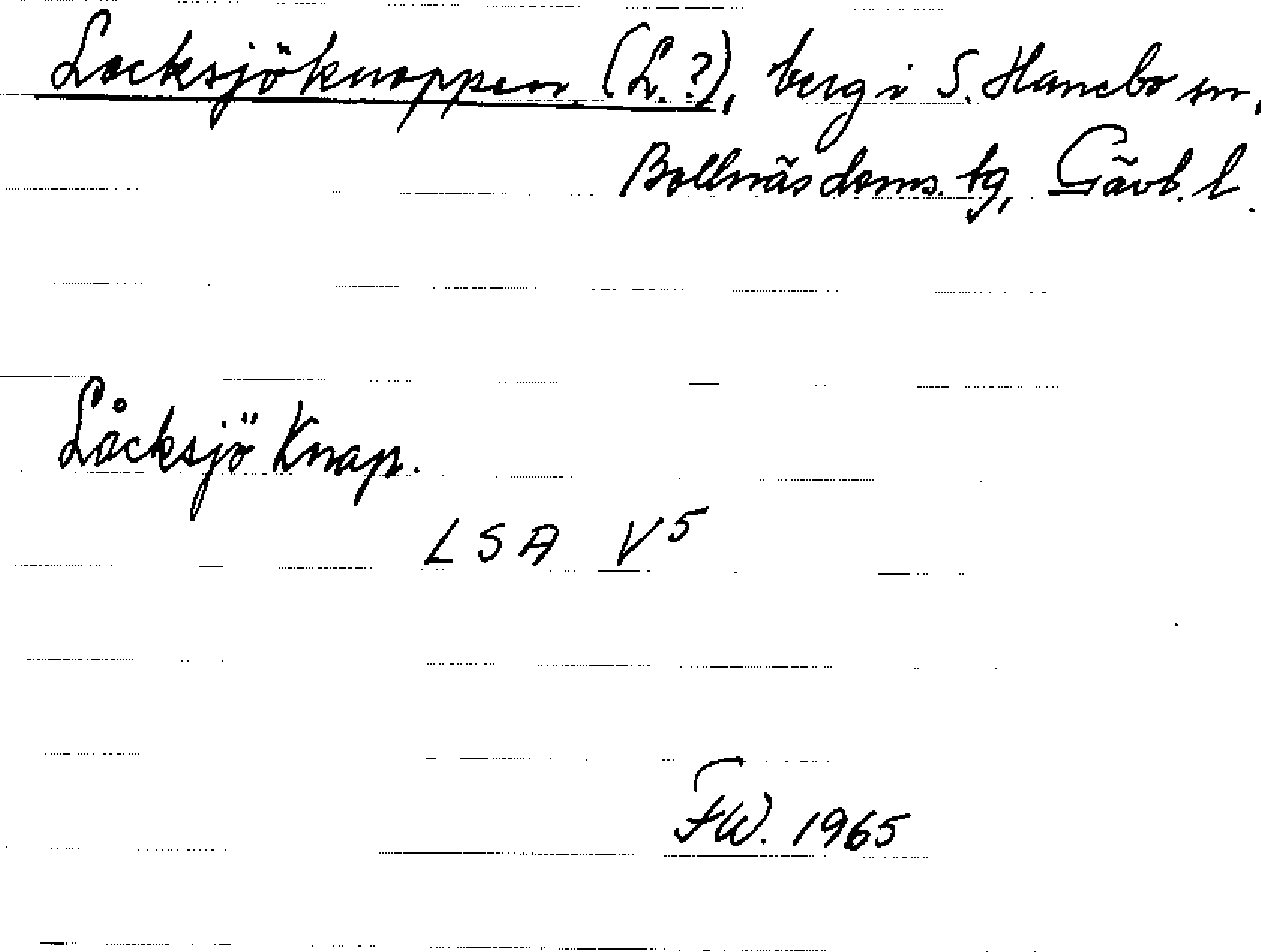 Locksjöknoppen (L.?), berg i S. Hanebo sn,
Bollnäs doms. tg, Gävb. l.
Låcksjö Knap.
LSA V5
FW. 1965